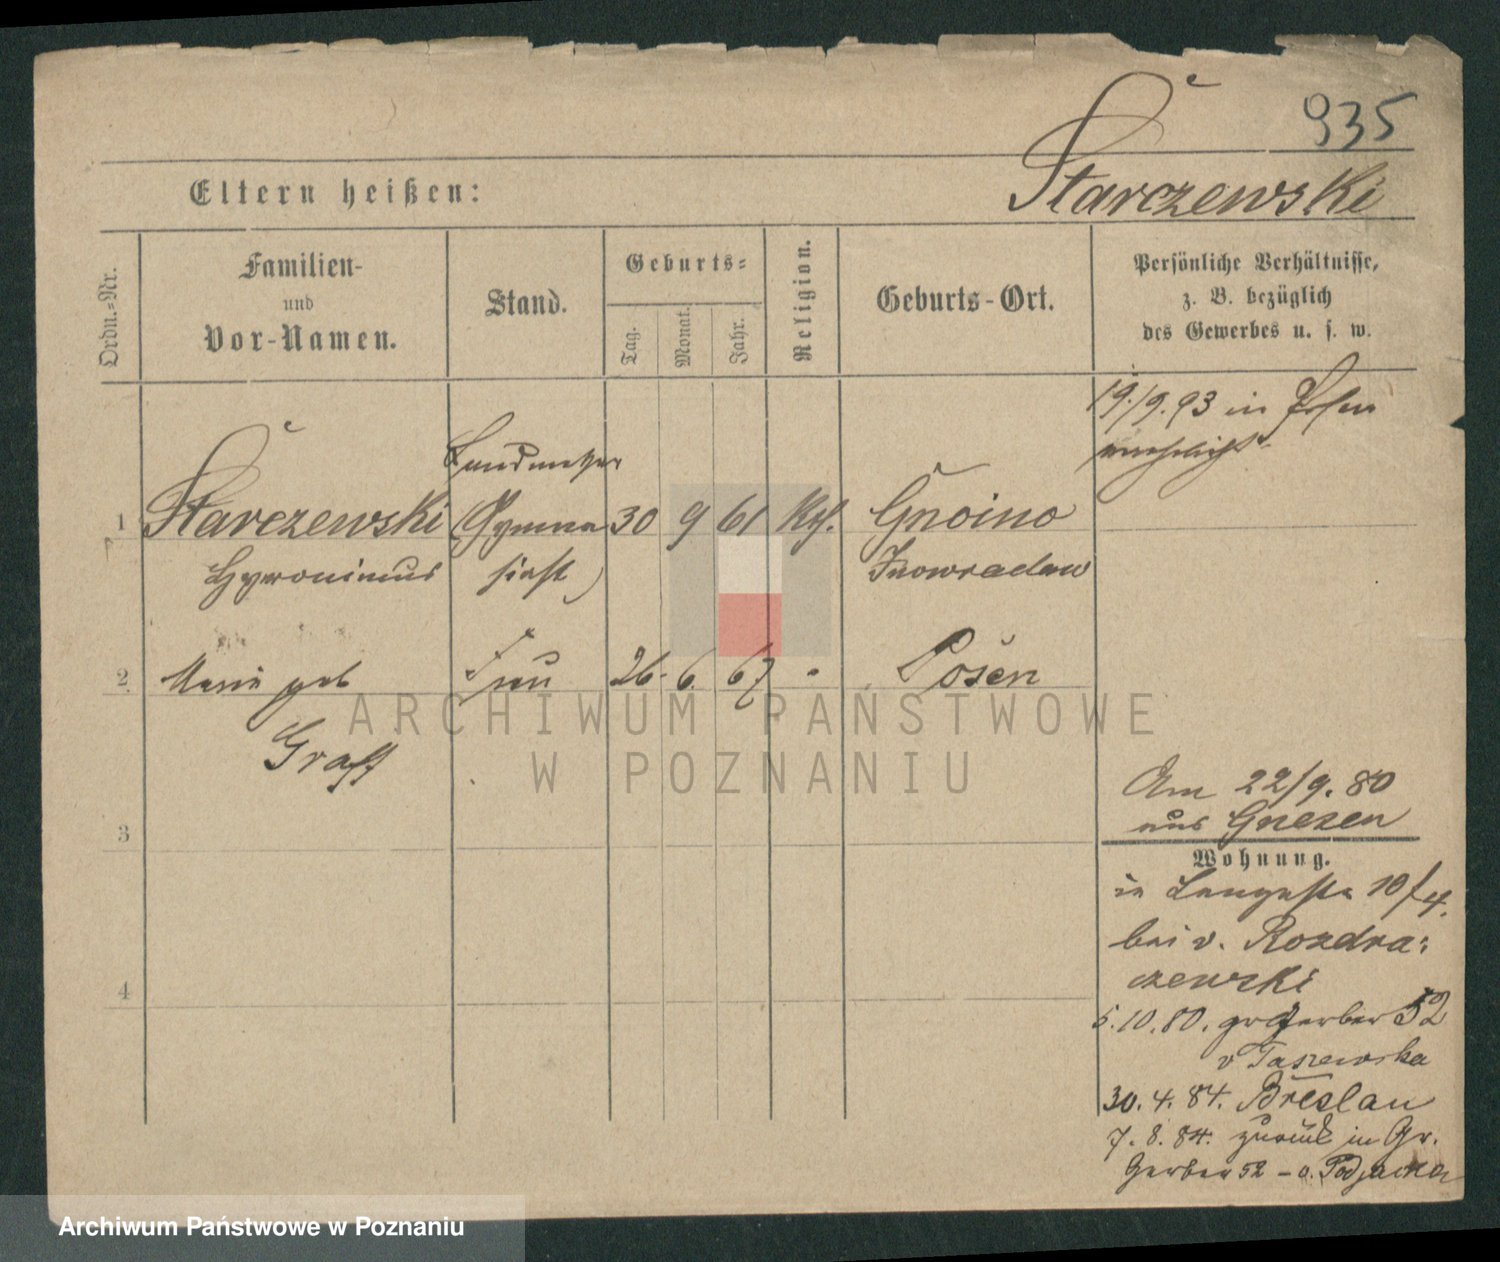 935
Starczewski
Eltern heißen:
Ordn.-Nr.
Familien-
und
Vor-Namen.
Stand.
Geburts-
Tag.
Monat.
Jahr.
Religion.
Geburts-Ort.
Persönliche Verhältnisse,
z. B. bezüglich
des Gewerbes u. s. w.
19./9.93 in Posen
verehelicht
Landmesser
1 Starczewski (Gymna 30 9 61 Kth. Gnoino
Hyronimus siast) Inowraclaw
2 Marie geb Frau 26. 6. 67 Posen
Graff
3
4
Am 22/9. 80
aus Gnesen
Wohnung.
in Langestr 10/4.
bei v. Rozdra:
zewski
5.10.80. gr Gerber 52
v Taszewska
30.4.84. Breslau
7.8.84. zurück in Gr.
Gerber 52 -
ARCHIWUM PAŃSTWOWE
W POZNANIU
Archiwum Państwowe w Poznaniu